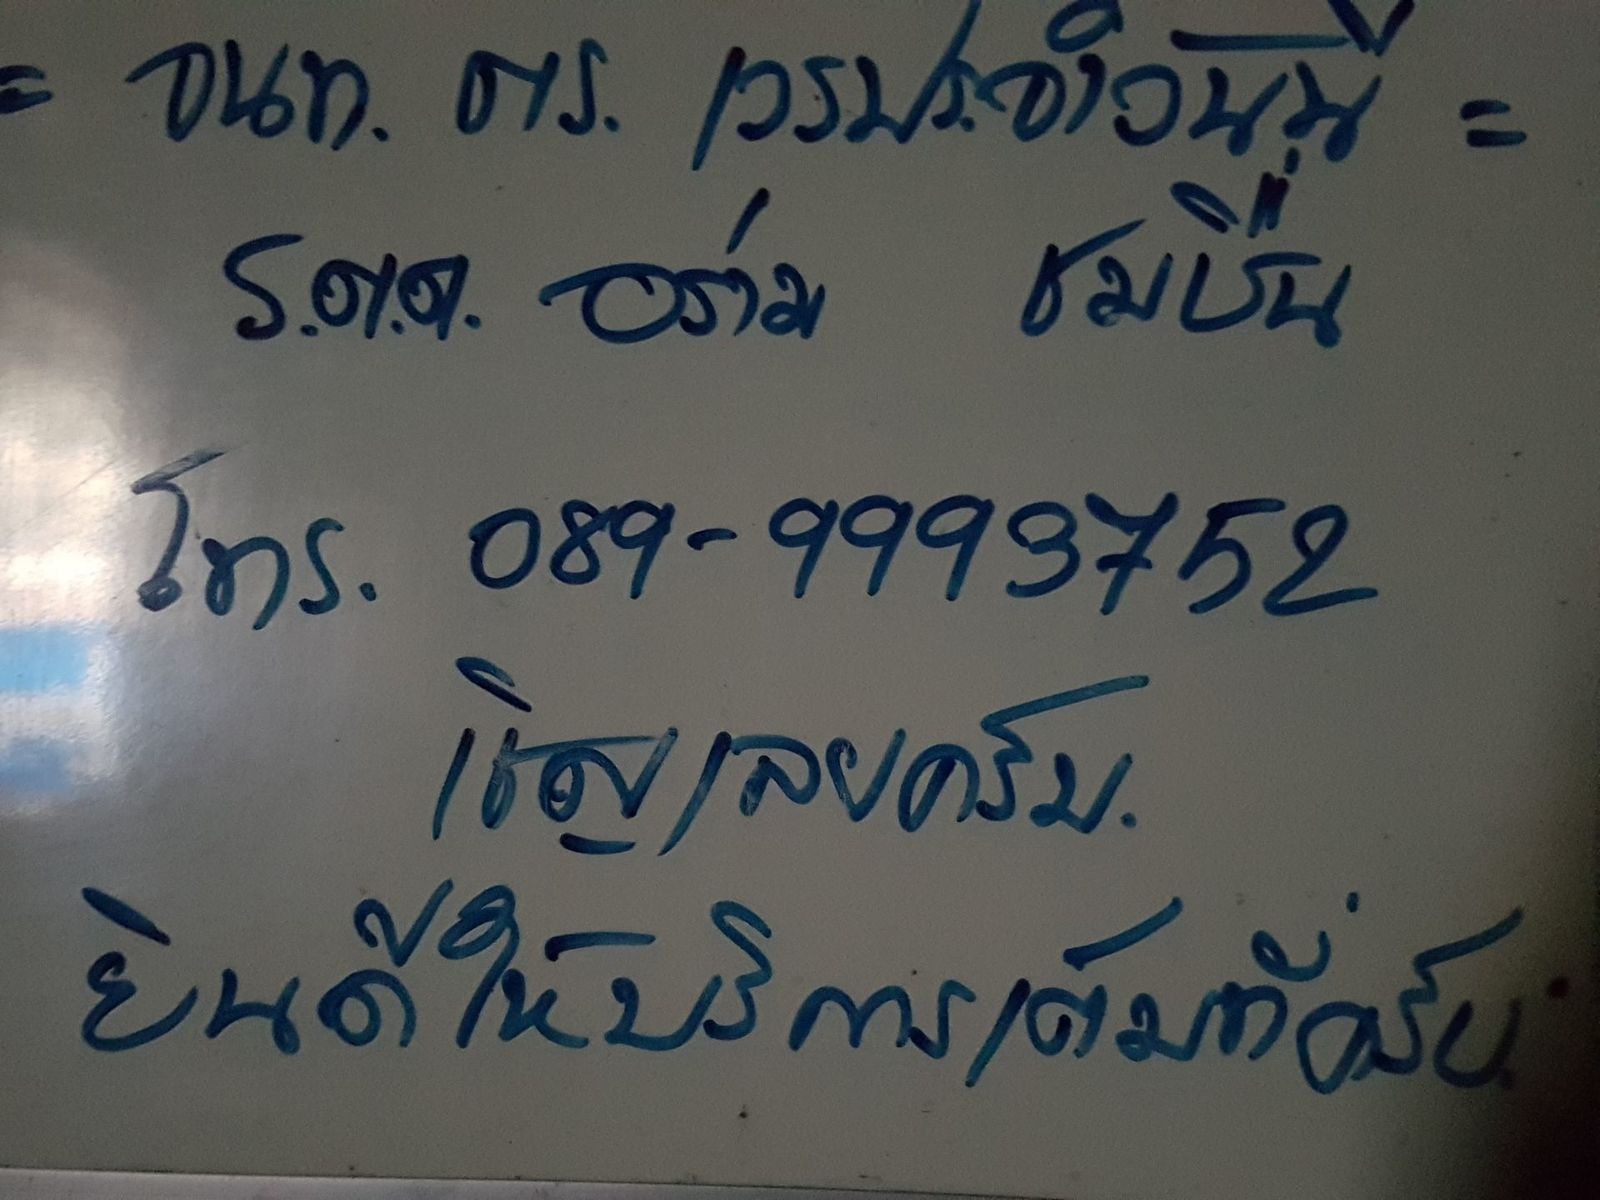 = จนท. ตร. เวรประจำวันนี้ =
ร.ต.ต. อร่าม ชมชื่น
โทร. 089-9993752
เชิญเลยครับ.
ยินดีให้บริการเต็มที่ครับ.